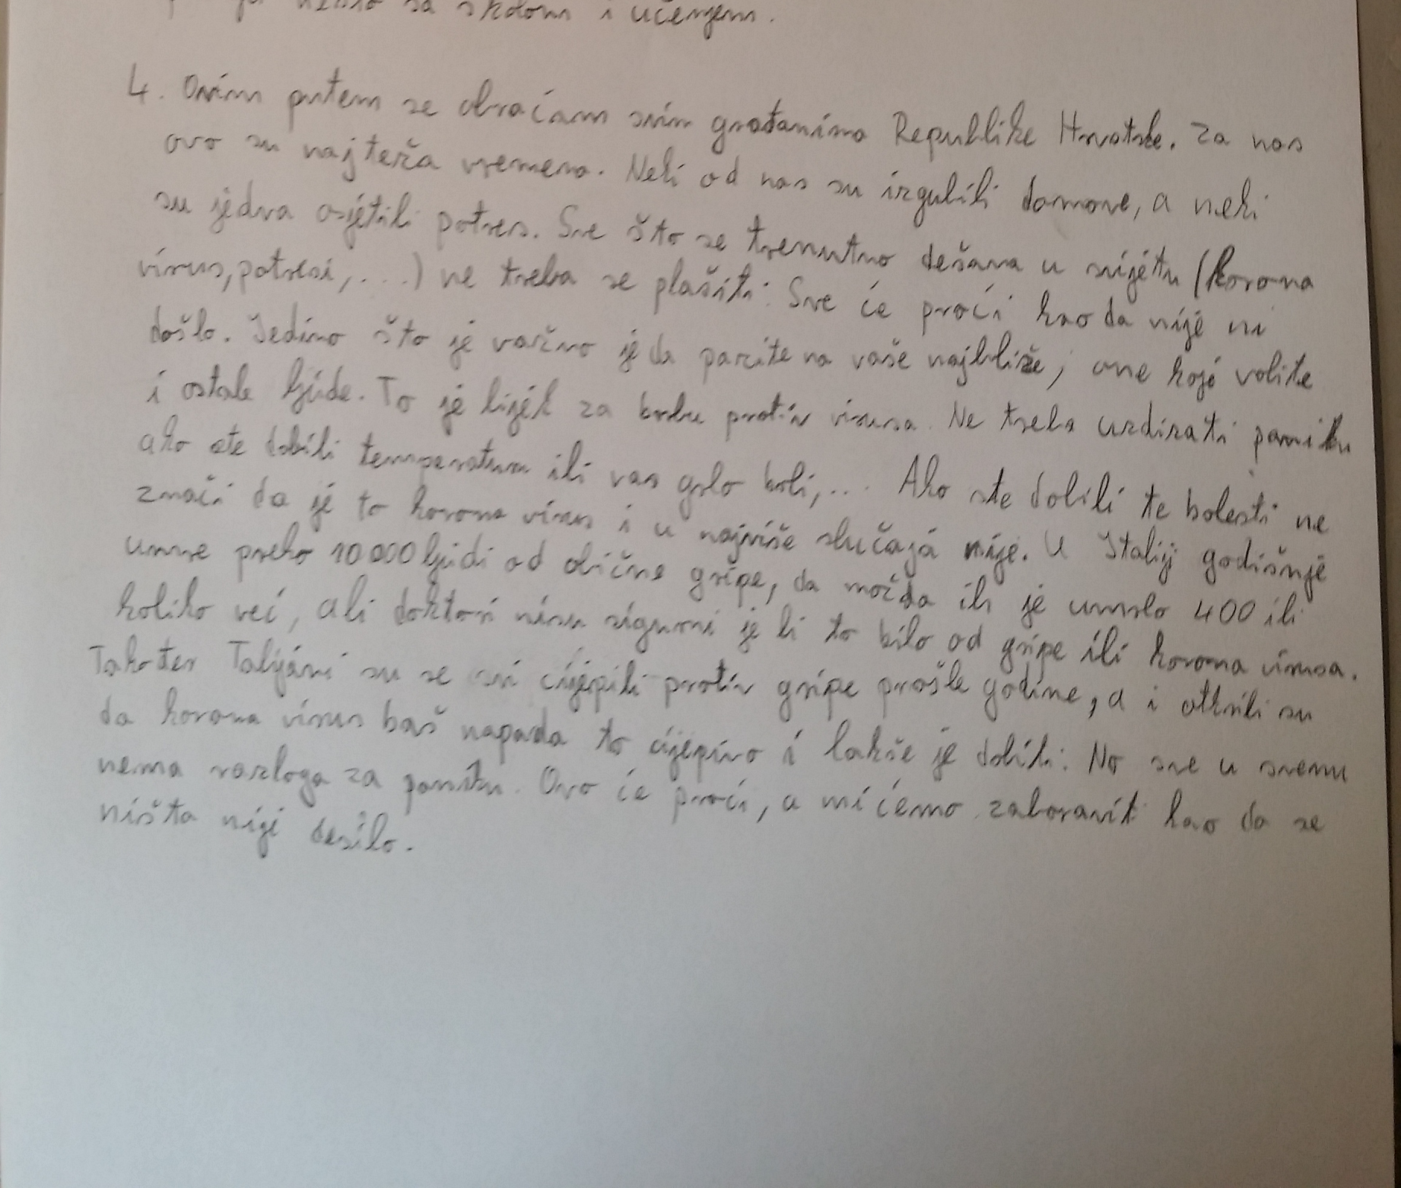 sa školom i učenjem.
4. Ovim putem se obraćam svim građanima Republike Hrvatske. Za nas
ovo su najteža vremena. Neki od nas su izgubili domove, a neki
su jedva osjetili potres. Sve što se trenutno dešava u svijetu (korona
virus, potresi, ...) ne treba se plašiti. Sve će proći kao da nije ni
došlo. Jedino što je važno je da pazite na vaše najbliže, one koje volite
i ostale ljude. To je lijek za borbu protiv virusa. Ne treba uzdizati paniku
ako ste dobili temperaturu ili vas grlo boli,... Ako ste dobili te bolesti ne
znači da je to korona virus i u najviše slučaja nije. U Italiji godišnje
umre preko 10000 ljudi od obične gripe, da možda ih je umrlo 400 ili
koliko već, ali doktori nisu sigurni je li to bilo od gripe ili korona virusa.
Također Talijani su se svi cijepili protiv gripe prošle godine, a i otkrili su
da korona virus baš napada to cijepivo i lakše je dobiti. No sve u svemu
nema razloga za paniku. Ovo će proći, a mi ćemo zaboravit kao da se
ništa nije desilo.